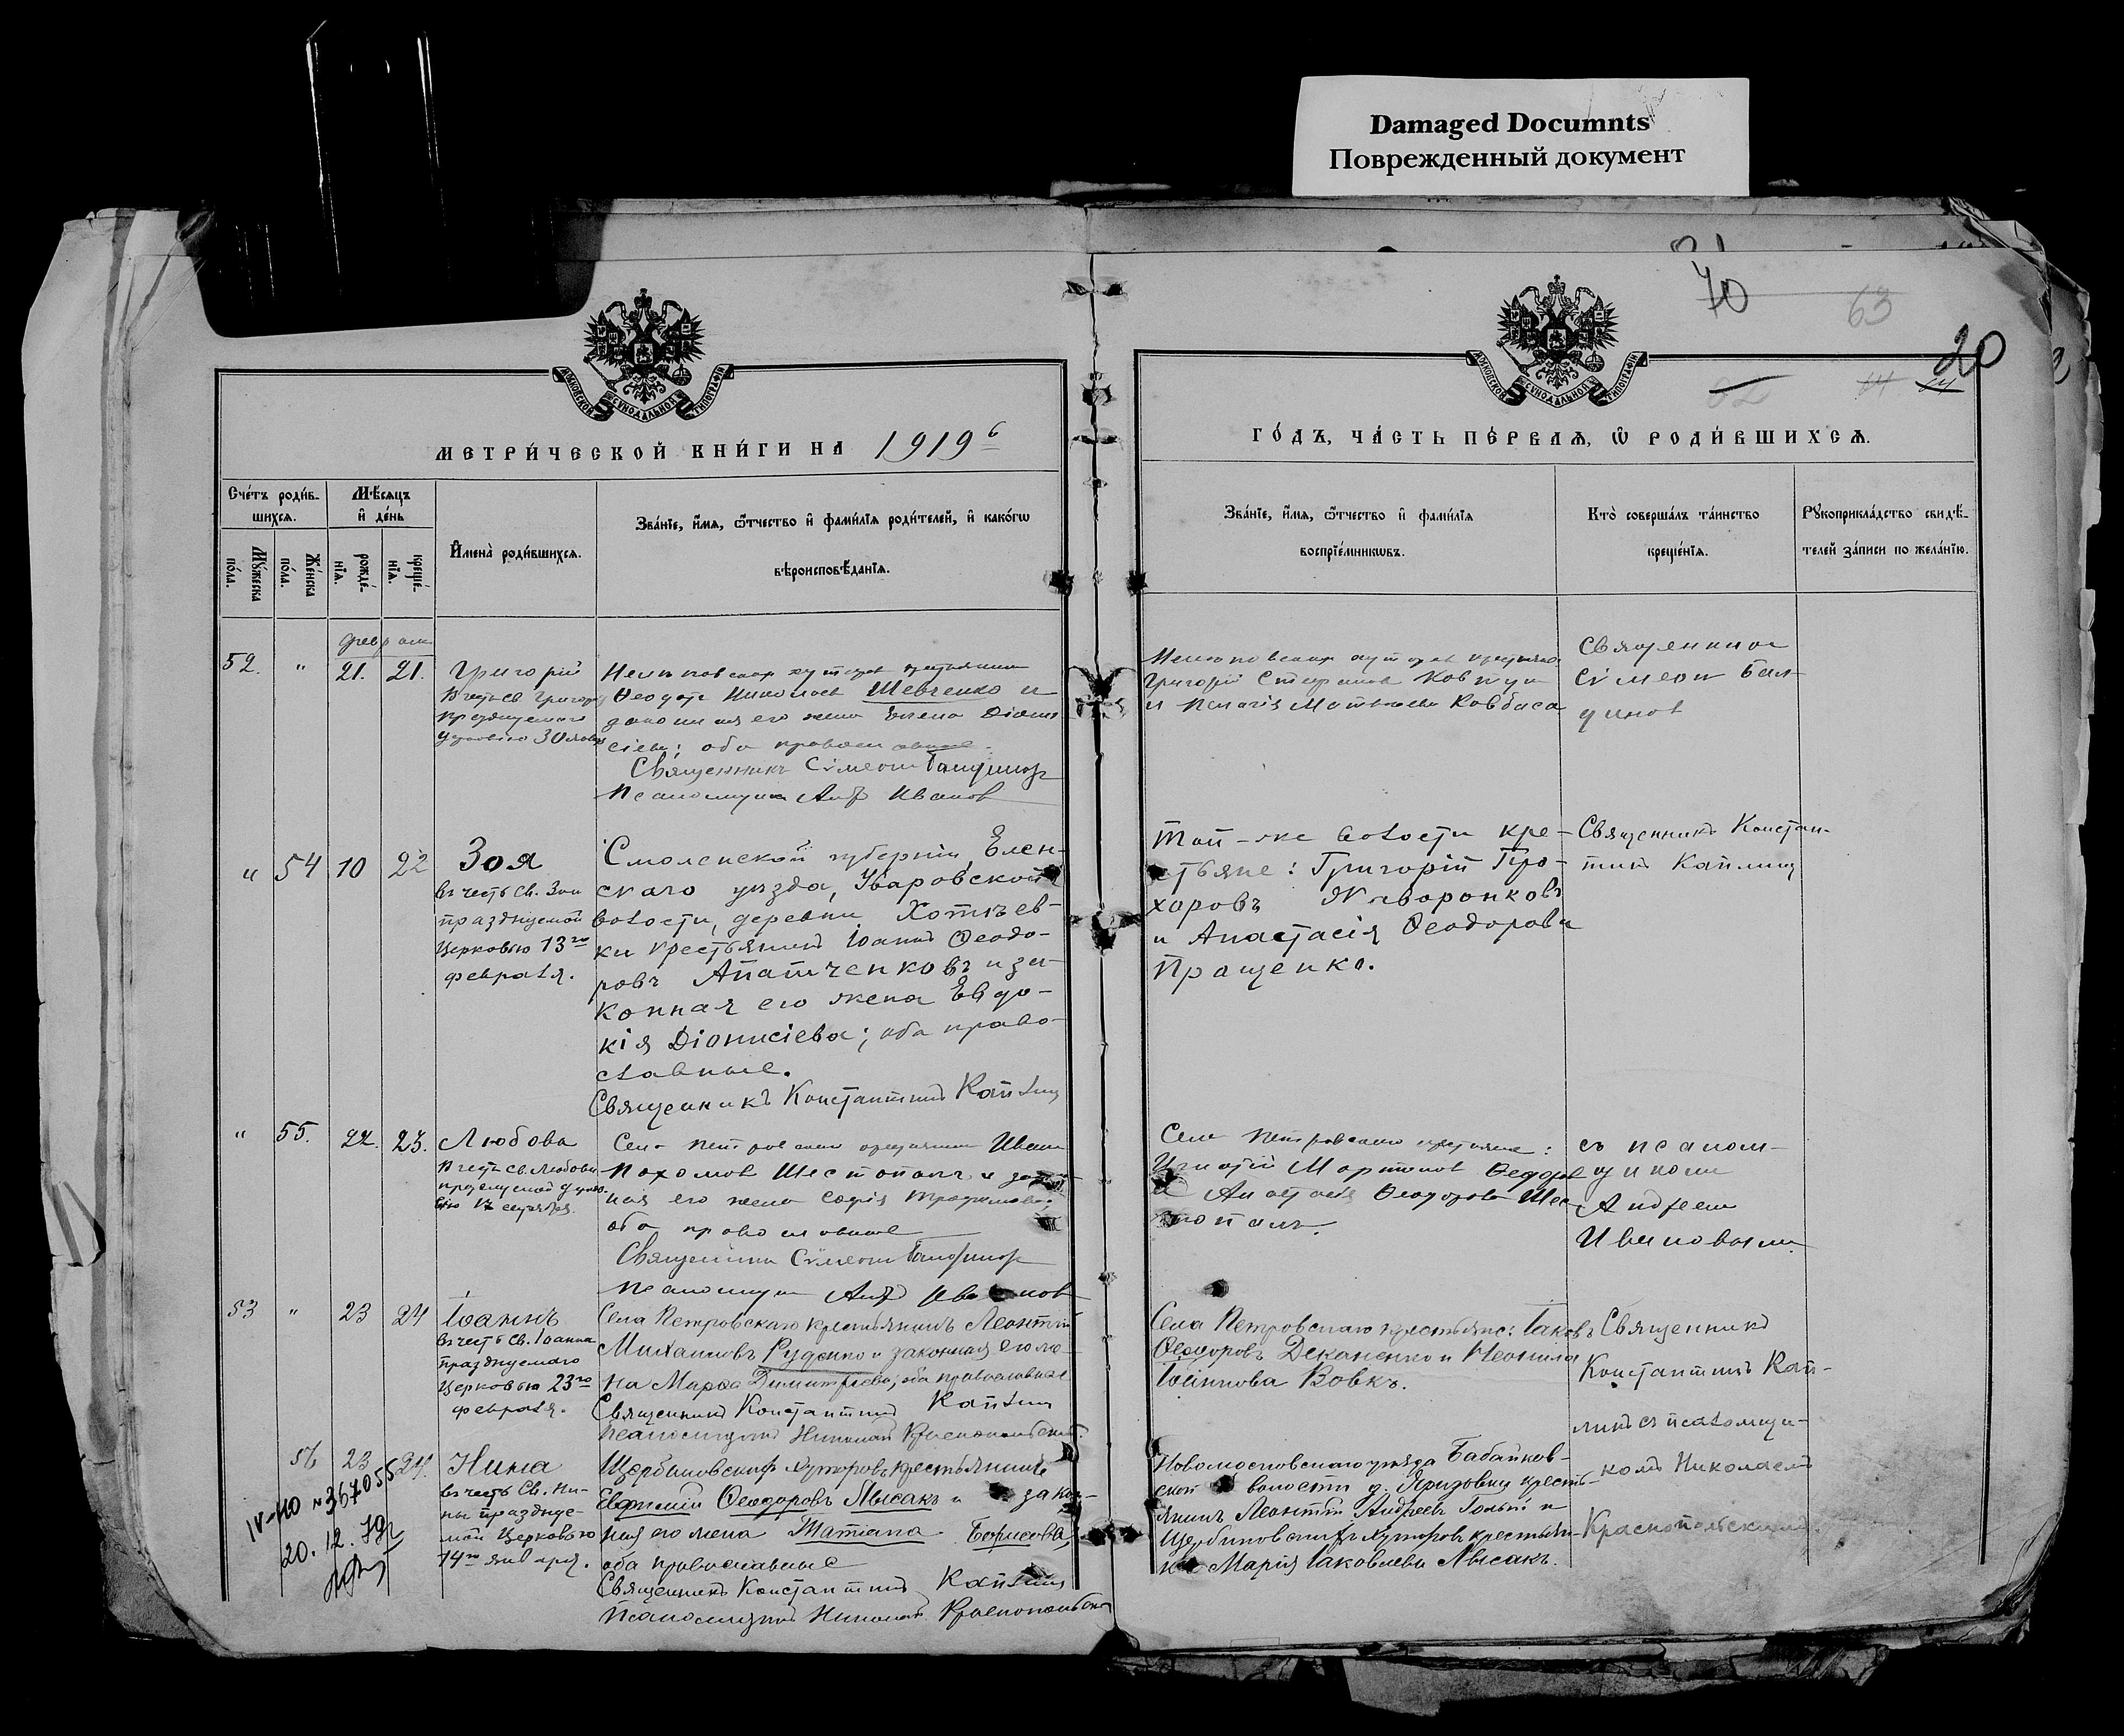 Damaged Documnts
Поврежденный документ
70
63
20
МОСКОВСКОЙ СУНОДАЛЬНОЙ ТИПОГРАФІИ
МОСКОВСКОЙ СУНОДАЛЬНОЙ ТИПОГРАФІИ
МЕТРИ́ЧЕСКОЙ КНИ́ГИ НА 1919
ГО́ДЪ, ЧА́СТЬ ПЕ́РВАЯ, Ѽ РОДИ́ВШИХСЯ.
Сче́тъ роди́в-
шихся.
Мѣ́сяцъ
и҆ де́нь
Му́жеска
по́ла.
Же́нска
по́ла.
рожде́-
нїя.
креще́-
нїя.
И҆мена̀ роди́вшихся.
Зва́нїе, и҆́мя, ѻ҆́тчество и҆ фами́лїя роди́телей, и҆ како́гѡ
вѣроисповѣ́данїя.
Зва́нїе, и҆́мя, ѻ҆́тчество и҆ фами́лїя
воспрїе́мникѡвъ.
Кто̀ соверша́лъ та́инство
креще́нїя.
Рꙋкоприкла́дство свидѣ́-
телей за́писи по жела́нїю.
52. " 21. 21.
Григорій
Въ честь св. Григорія
празднуемаго
30 января
хуторовъ крестьянинъ
Ѳеодотъ Николаевъ Шевченко и
законная его жена Елена Діони
сіева; оба православные.
Священникъ Сѵмеонъ
Псаломщикъ Анд Иванов
хуторовъ крестьяне
Григорій Стефановъ Ковтун
и Пелагія Матвѣева Ковбаса
Священникъ
Сѵмеон
" 54 10 22
Зоя
въ честь Св. Зои
празднуемой
Церковью 13го
февраля.
Смоленской губерніи, Елен-
скаго уѣзда, Уваровской
волости, деревни Хотѣев-
ки крестьянинъ Іоаннъ Ѳеодо-
ровъ Апатченковъ и за-
конная его жена Евдо-
кія Діонисіева; оба право-
славные.
Священникъ Константинъ Каплин
Той-же волости кре-
стьяне: Григорій Про-
хоровъ Жаворонковъ
и Анастасія Ѳеодорова
Пращенко.
Священникъ Констан-
тинъ Каплинъ
" 55. 22. 23.
Любовь
Въ честь св. Любови
17 сентября
Села Петровскаго крестьянинъ Иванъ
Пахомов Шестопалъ и закон
ная его жена Софія Трофимова;
оба православные
Священникъ Сѵмеонъ
Псаломщикъ Анд Иванов
Села Петровскаго крестьяне:
Игнатій Мартинов Ѳедоров
и Анастасія Ѳеодорова Шес
топалъ.
съ псалом-
щиком
Андреем
Ивановым.
53 " 23 24
Іоаннъ
въ честь Св. Іоанна
празднуемаго
Церковью 23го
февраля.
Села Петровскаго крестьянинъ Леонтій
Михаиловъ Руденко и законная его же-
на Марѳа Димитріева; оба православные
Священникъ Константинъ Каплин
Псаломщикъ Николай Краснопольскій.
Села Петровскаго крестьяне: Іаковъ
Ѳеодоровъ Деканенко и Неонила
Іоаннова Вовкъ.
Священникъ
Константинъ Кап-
линъ съ псаломщи-
комъ Николаемъ
Краснопольскимъ.
56 23 24.
Нина
въ честь Св. Ни-
ны праздную-
мой Церковью
14го января.
Щербиновскихъ хуторовъ крестьянинъ
Евфимій Ѳеодоровъ Лысакъ и закон-
ная его жена Татіана Борисова,
оба православные
Священникъ Константинъ Каплин
Псаломщикъ Николай Краснопольскій
Новомосковскаго уѣзда Бабайков-
ской волости д. крестья-
янинъ Леонтій Андреевъ Голый и
Щербиновскихъ хуторовъ крестьян-
ка Марія Іаковлева Лысакъ.
IV-НО №367055
20.12.79г